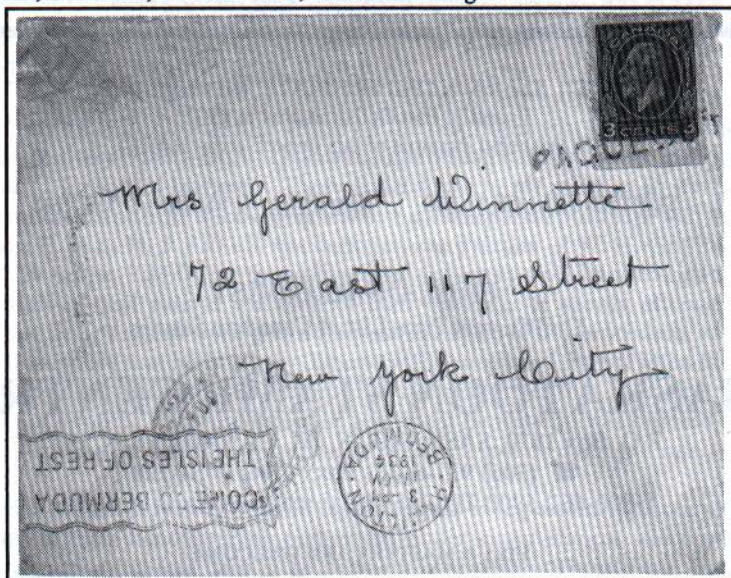 CANADA
3 CENTS 3
PAQUEBOT
Mrs Gerald Winnette
72 East 117 Street
New York City
COME TO BERMUDA
THE ISLES OF REST
HAMILTON
3 PM
1934
BERMUDA